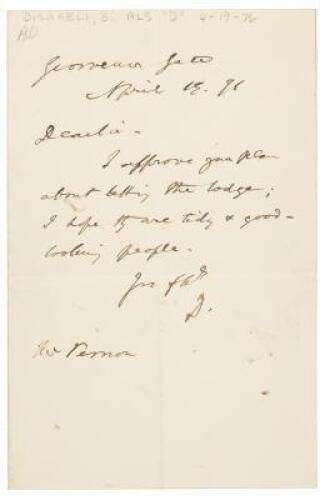 DISRAELI, B. ALS "D" 4-19-76
AD
Grosvenor Gate
April 19. 71
Dear Sir -
I approve your plan
about letting the lodge;
I hope they are tidy & good-
looking people.
Yrs
D.
Mr Vernon